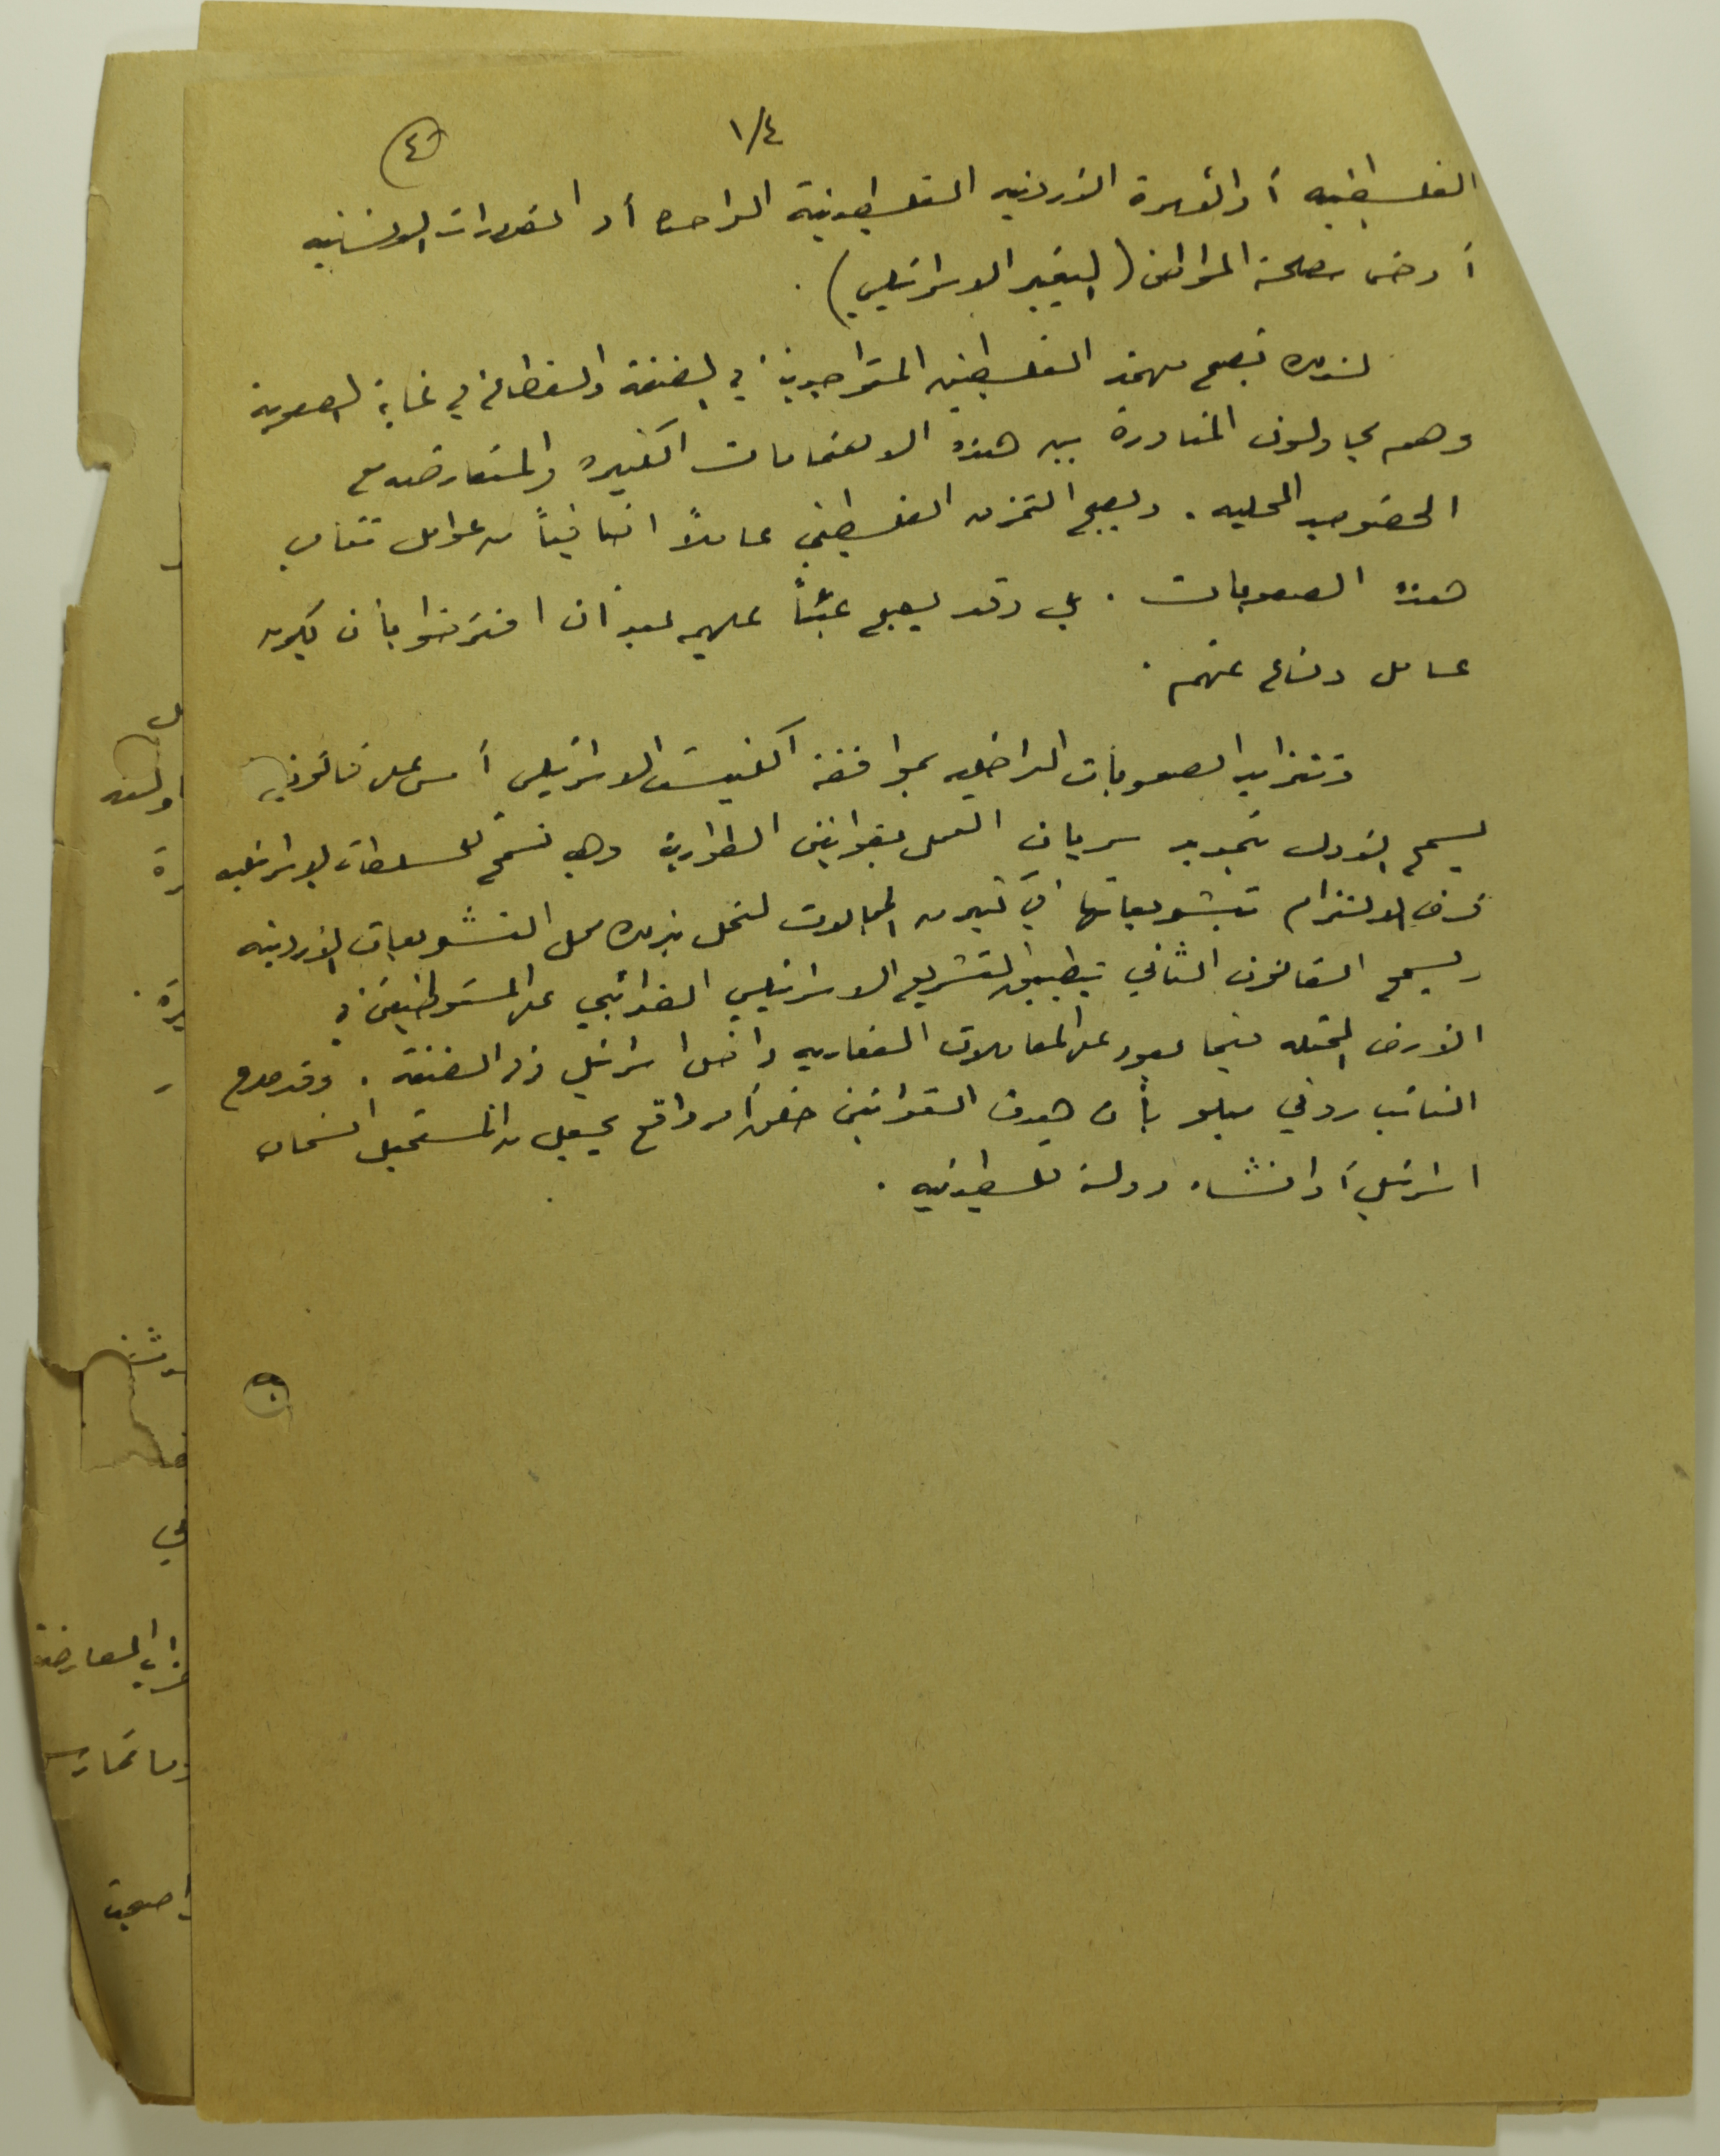 ١/٤
٤
الفلسطينيه أو الأسرة الأردنيه الفلسطينية الواحده أو الضرورات الانسانيه
أو حتى مصلحة المواطن (البغير الاسرائيلي).
لذلك تصبح مهمة الفلسطينيين المتواجدين في الضفة والقطاع في غاية الصعوبة
وهم يحاولون المناورة بين هذه الاهتمامات الكثيره والمتعارضه مع
الخصوصيه المحليه. ويصبح التمزق الفلسطيني عاملاً اضافياً من عوامل تفاقم
هذه الصعوبات. بل وقد يصبح عبئاً عليهم بعد أن افترضوا بأن يكون
عامل دفاع عنهم.
وتتزايد الصعوبات الداخليه بموافقة الكنيست الاسرائيلي أمس على قانونين
يسمح الأول بتجديد سريان العمل بقوانين الطوارئ وهي تسمح للسلطات الاسرائيليه
فرض الالتزام بتشريعاتها في كثير من المجالات لتحل بذلك محل التشريعات الأردنيه
ويسمح القانون الثاني بتطبيق التشريع الاسرائيلي الضرائبي على المستوطنين في
الأرض المحتله فيما يعود على المعاملات العقاريه داخل اسرائيل أو الضفة. وقد صرح
النائب روني ميلو بأن هدف القوانين خلق أمر واقع يجعل من المستحيل انسحاب
اسرائيل أو انشاء دولة فلسطينيه.
ولند
رة
في
المعارضة
وما تمارس